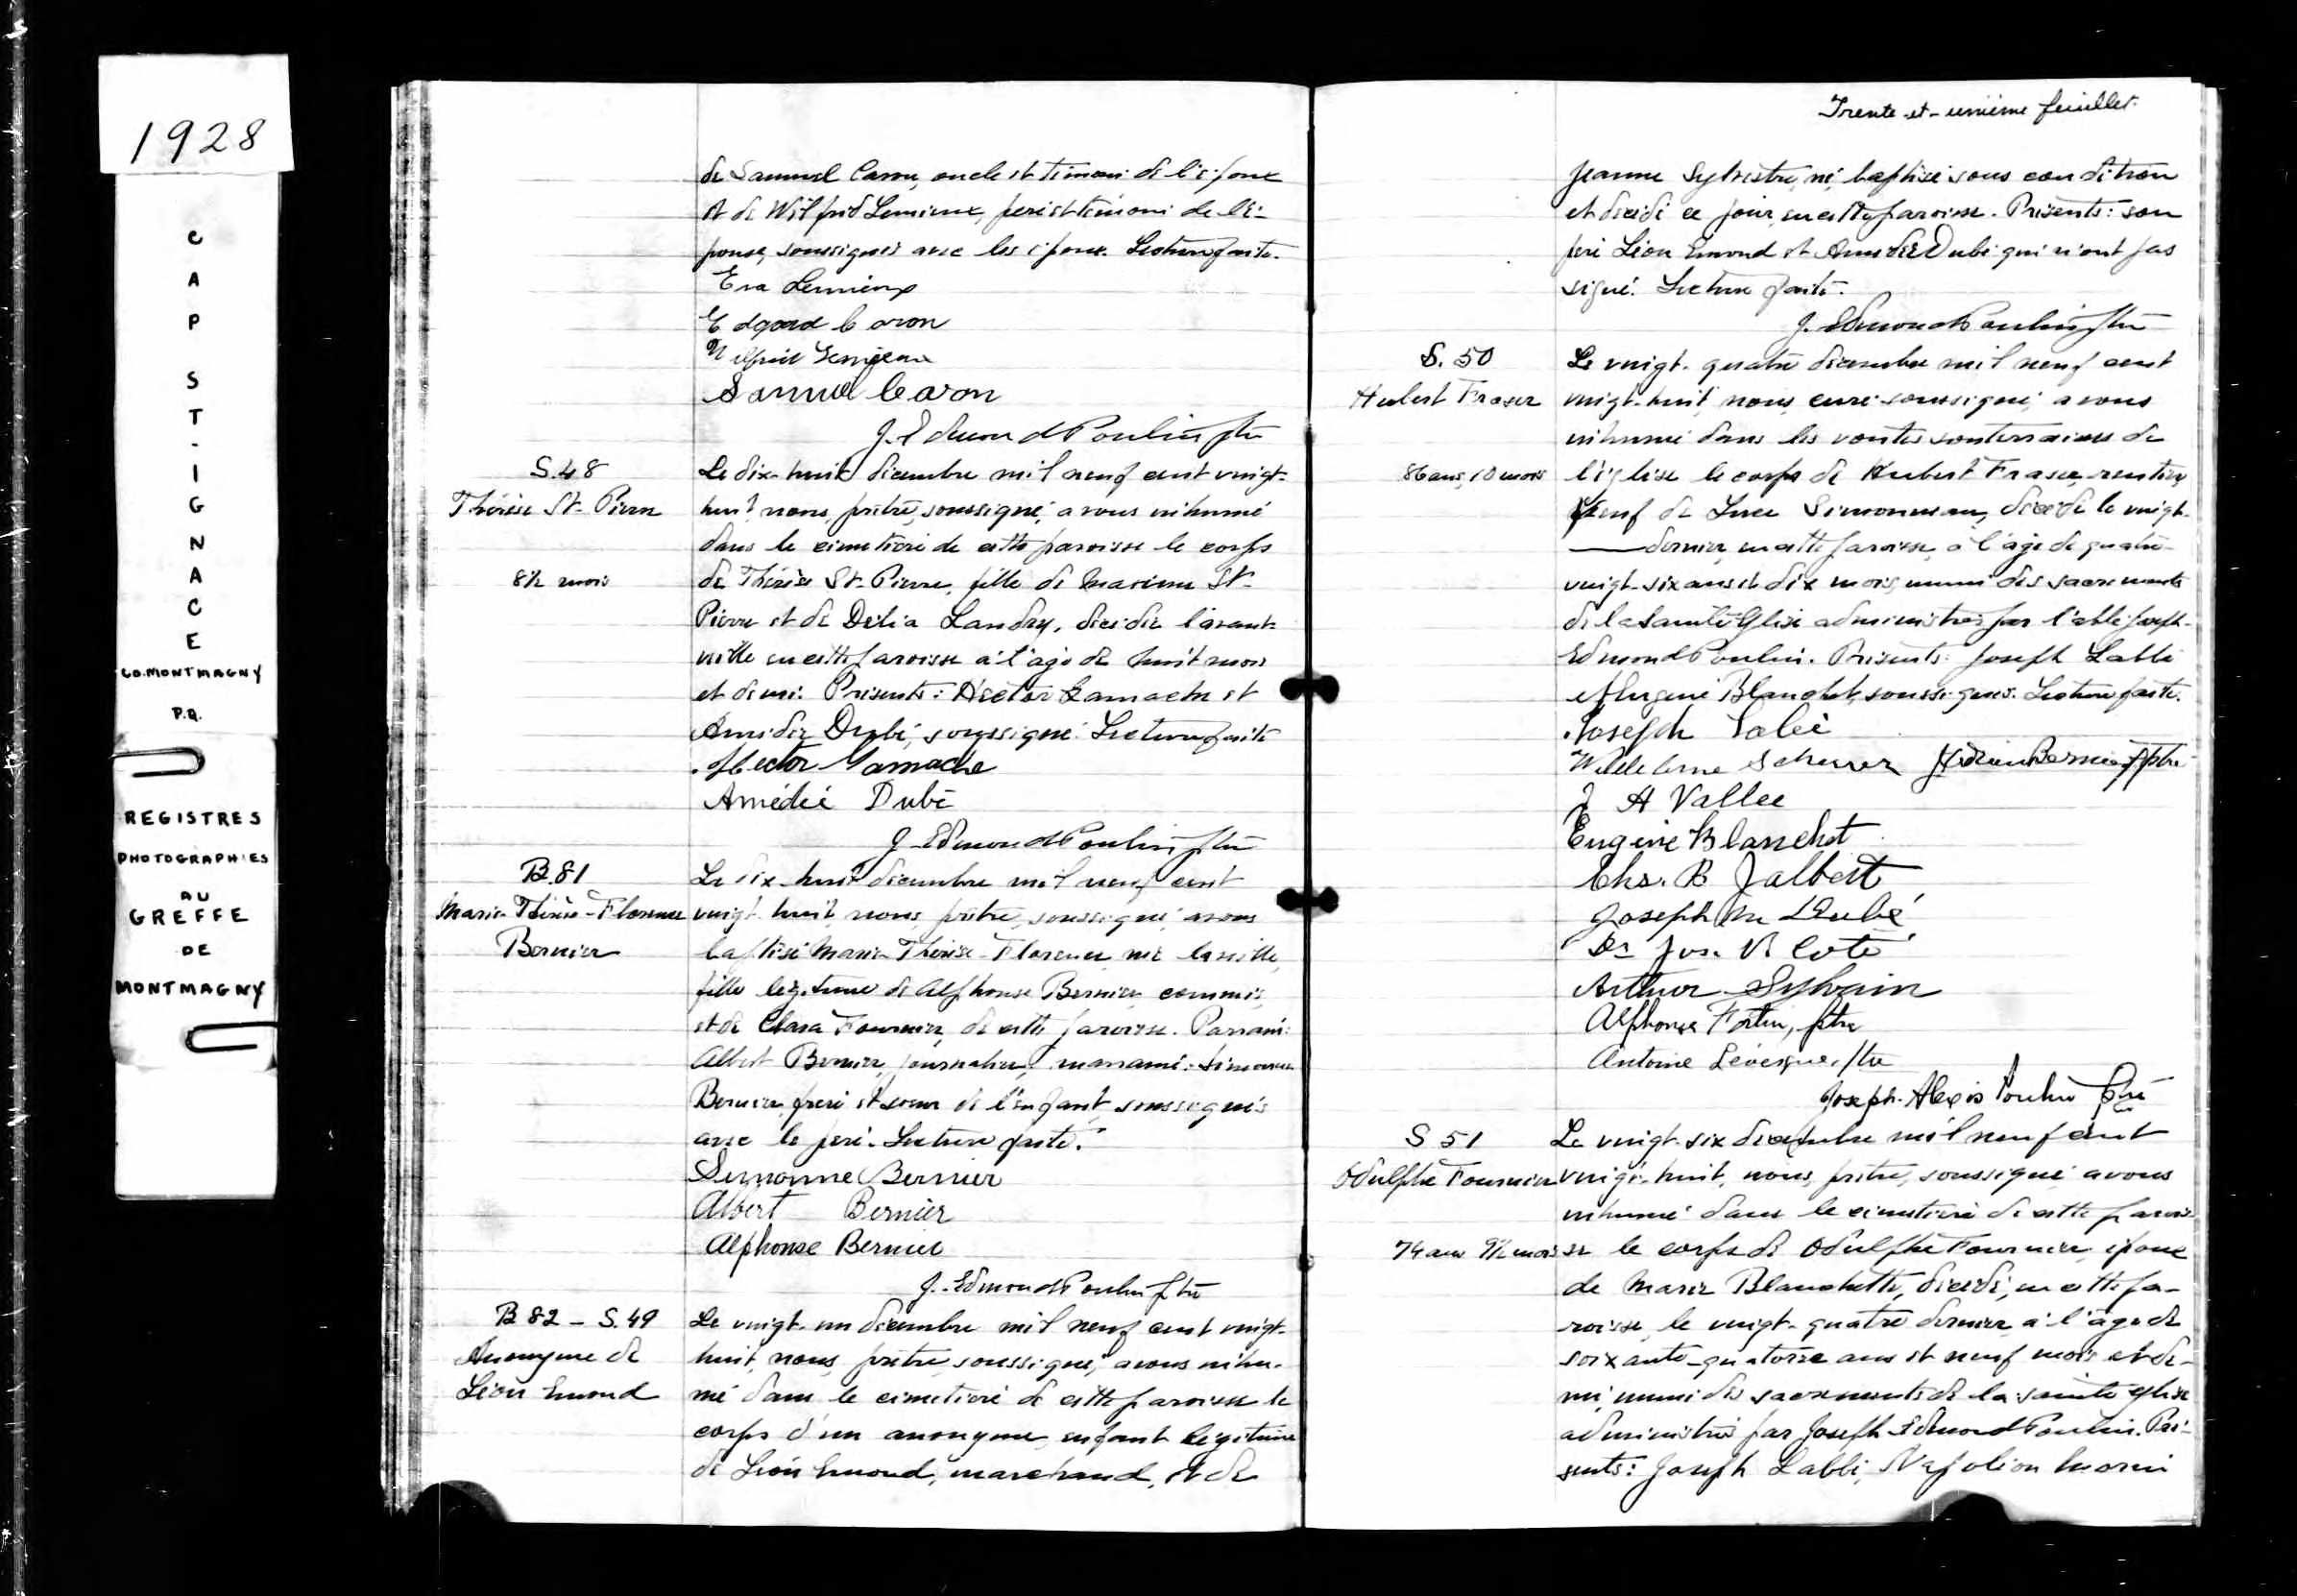 1928
C
A
P
S
T
-
I
G
N
A
C
E
CO. MONTMAGNY
P.Q.
REGISTRES
PHOTOGRAPHIES
AU
GREFFE
DE
MONTMAGNY
de Samuel Caron, oncle et témoin de l'époux
et de Wilfrid Lemieux, père et témoin de l'é-
pouse, soussignés avec les époux. Lecture faite.
Eva Lemieux
Edgard Caron
Wilfrid Lemieux
Samuel Caron
J. Edmond Poulin ptre
S. 48
Thérèse St-Pierre
8½ mois
Le dix-huit décembre mil neuf cent vingt-
huit, nous, prêtre, soussigné, avons inhumé
dans le cimetière de cette paroisse le corps
de Thérèse St-Pierre, fille de Maxime St-
Pierre et de Délia Landry, décédée l'avant-
veille en cette paroisse à l'âge de huit mois
et demi. Présents: Hector Gamache et
Amédée Dubé, soussigné. Lecture faite
Hector Gamache
Amédée Dubé
J. Edmond Poulin ptre
B. 81
Marie-Thérèse-Florence
Bernier
Le dix-huit décembre mil neuf cent
vingt-huit, nous, prêtre, soussigné, avons
baptisé Marie-Thérèse-Florence née la veille,
fille légitime de Alphonse Bernier commis,
et de Clara Fournier, de cette paroisse. Parrain:
Albert Bernier, journalier, marraine: Simonne
Bernier, frère et soeur de l'enfant, soussignés
avec le père. Lecture faite.
Simonne Bernier
Albert Bernier
Alphonse Bernier
J. Edmond Poulin ptre
B 82 - S. 49
Anonyme de
Léon Emond
Le vingt-un décembre mil neuf cent vingt-
huit, nous, prêtre, soussigné, avons inhu-
mé dans le cimetière de cette paroisse le
corps d'un anonyme, enfant légitime
de Léon Emond, marchand, et de
Trente-et-unième feuillet
Jeanne Sylvestre, né, baptisé sous condition
et décédé ce jour, en cette paroisse. Présents: son
père Léon Emond et Amédée Dubé qui n'ont pas
signé. Lecture faite.
J. Edmond Poulin ptre
S. 50
Hubert Fraser
86 ans, 10 mois
Le vingt-quatre décembre mil neuf cent
vingt-huit, nous, curé soussigné, avons
inhumé dans les voûtes souterraines de
l'église le corps de Hubert Fraser, rentier,
veuf de Luce Simonneau, décédé le vingt-
dernier, en cette paroisse, à l'âge de quatre-
vingt-six ans et dix mois, muni des sacrements
de la Sainte Eglise administrés par l'abbé Joseph-
Edmond Poulin. Présents: Joseph Labbé
et Eugène Blanchet, soussignés. Lecture faite.
Joseph Labbé
J A Vallee
Eugène Blanchet
Chs. B Jalbert
Joseph M Dubé
Dr Jos. V. Coté
Arthur Sylvain
Alphonse Fortin, ptre
Antoine Lévesque, ptre
Joseph-Alexis Poulin Ptre
S 51
Odulphe Fournier
74 ans 9½ mois
Le vingt-six décembre mil neuf cent
vingt-huit, nous, prêtre, soussigné avons
inhumé dans le cimetière de cette parois-
se le corps de Odulphe Fournier, époux
de Marie Blanchette, décédé, en cette pa-
roisse, le vingt-quatre dernier à l'âge de
soixante-quatorze ans et neuf mois et de-
mi, muni des sacrements de la sainte église
administré par Joseph-Edmond Poulin. Pré-
sents: Joseph Labbé, Napoléon Morin